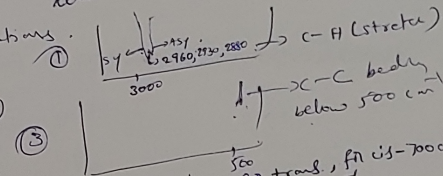 tions.
① sy Asy 2960, 2930, 2850 → C-H (stretch)
3000
③ C-C bending
below 500 cm⁻¹
500
trans., for cis-700c